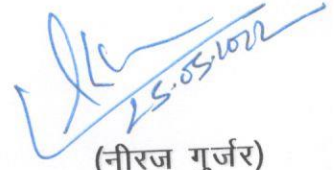 25.05.2022
(नीरज गुर्जर)